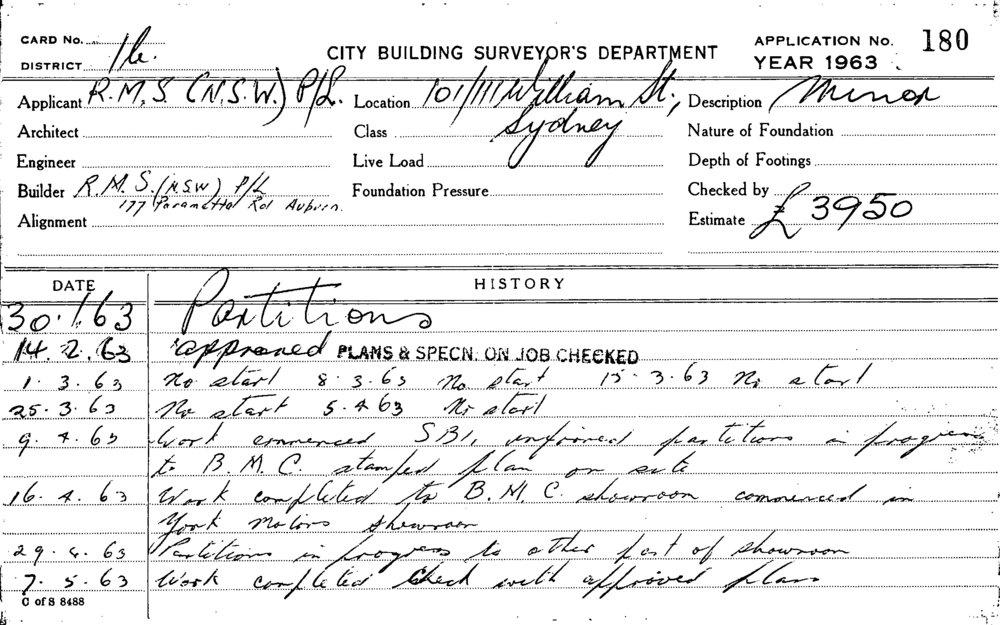 CARD No. 16.
DISTRICT
CITY BUILDING SURVEYOR'S DEPARTMENT
APPLICATION No. 180
YEAR 1963
Applicant R.M.S. (N.S.W.) P/L. Location 101/111 William St., Description Minor
Architect Class Sydney Nature of Foundation
Engineer Live Load Depth of Footings
Builder R.M.S. (NSW) P/L Foundation Pressure Checked by
177 Parametta Rd Auburn.
Alignment Estimate £ 3950
DATE HISTORY
30.1.63 Partitions
14.2.63 approved PLANS & SPECN. ON JOB CHECKED
1.3.63 No start 8.3.63 No start 15.3.63 No start
25.3.63 No start 5.4.63 No start
9.4.63 Work commenced partitions in progress
to B.M.C. stamped plan on site
16.4.63 Work completed to B.M.C. showroom commenced in
York Motors showroom
29.4.63 Partitions in progress to other part of showroom
7.5.63 Work completed Check with approved plans
C of S 8488